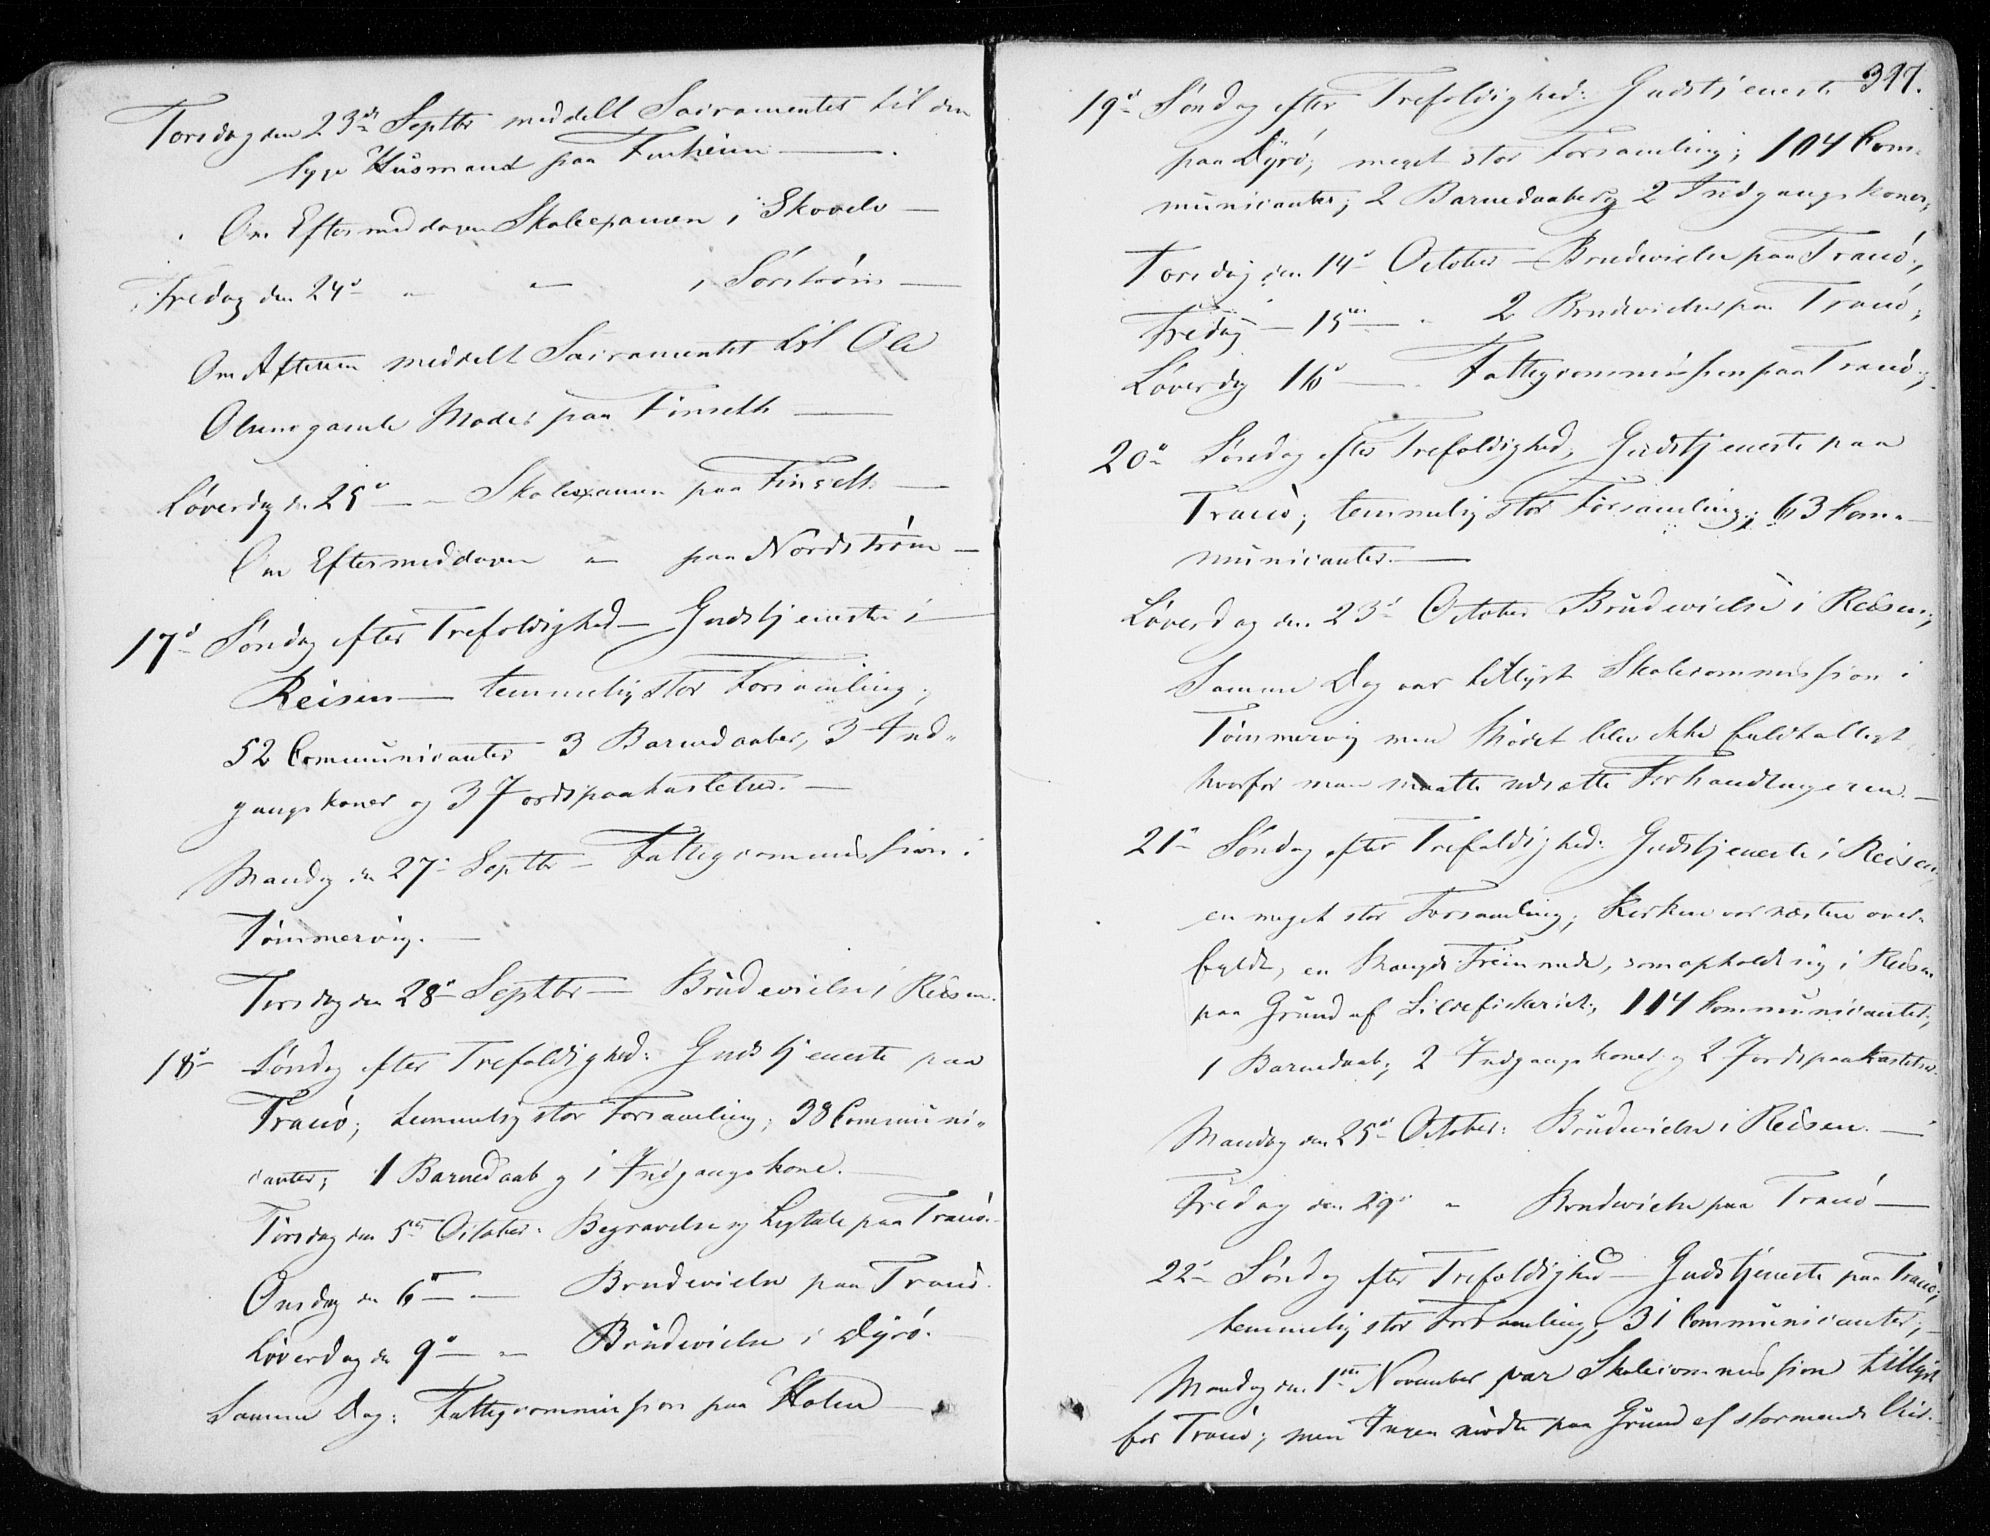 Torsdag den 23de Septbr meddelt Sacramentet til den
syge Husmand paa Furheim —
Om Eftermiddagen Skoleexamen i Skovelv —
Fredag den 24d " " i Sörström —
Om Aftenen meddelt Sacramentet til Ole
Olsens gamle Moder paa Finseth —
Löverdag d. 25d — " Skolexamen paa Finseth —
Om Eftermiddagen " paa Nordström —
17d Söndag efter Trefoldighed — Gudstjeneste i
Reisen — temmelig stor Forsamling;
52 Communicanter 3 Barnedaaber, 3 Ind-
gangskoner og 3 Jordspaakastelser. —
Mandag den 27d Septbr — Fattigcommission i
Tömmervig. —
Tirsdag den 28d Septbr — Brudevielse i Reisen.
18d Söndag efter Trefoldighed: Gudstjeneste paa
Tranö; temmelig stor Forsamling; 38 Communi-
canter; 1 Barnedaab og 1 Indgangskone. —
Tirsdag den 5te October: Begravelse og Ligtale paa Tranö. —
Onsdag den 6te — " Brudevielse paa Tranö.
Löverdag den 9d — " Brudevielse i Dyrö. —
Samme Dag: Fattigcommission paa Holm —
397.
19d Söndag efter Trefoldighed: Gudstjeneste
paa Dyrö; meget stor Forsamling; 104 Com-
municanter; 2 Barnedaaber og 2 Indgangskoner;
Torsdag den 14d October — Brudevielse paa Tranö;
Fredag — 15de — " 2 Brudevielser paa Tranö;
Löverdag 16d — " Fattigcommission paa Tranö;
20d Söndag efter Trefoldighed, Gudstjeneste paa
Tranö; temmelig stor Forsamling; 63 Com-
municanter. —
Löverdag den 23d October Brudevielse i Reisen;
Samme Dag var tillyst Skolecommission i
Tömmervig men Mödet blev ikke fuldtalligt,
hvorfor man maatte udsætte Forhandlingerne. —
21d Söndag efter Trefoldighed: Gudstjeneste i Reisen,
en meget stor Forsamling; Kirken var næsten over-
fyldt, en Mængde Fremmede, som opholdt sig i Reisen
paa Grund af Sildefiskeriet; 114 Communicanter;
1 Barnedaab; 2 Indgangskoner og 2 Jordspaakastelser.
Mandag den 25d October: Brudevielse i Reisen. —
Fredag den 29d " Brudevielse paa Tranö —
22d Söndag efter Trefoldighed — Gudstjeneste paa Tranö;
temmelig stor Forsamling; 31 Communicanter; —
Mandag den 1ste November var Skolecommission tillyst
for Tranö; men Ingen mödte paa Grund af stormende Veir. —